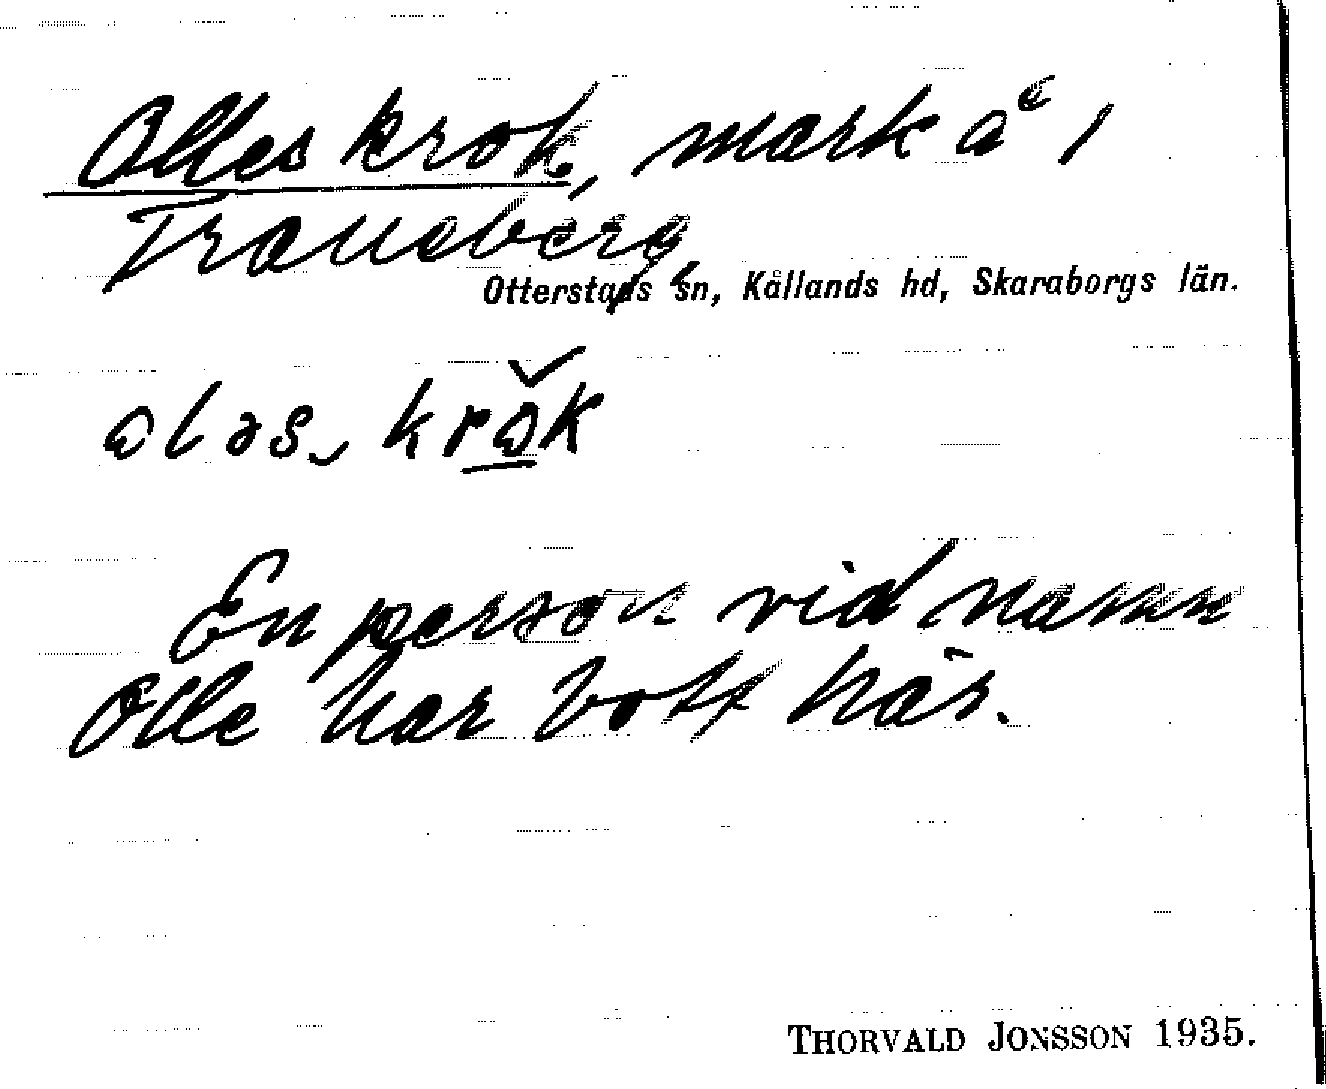 Olleskrok, mark å 1
Traneberg,
Otterstads sn, Kållands hd, Skaraborgs län.
En person vid namn
Olle har bott här.
THORVALD JONSSON 1935.